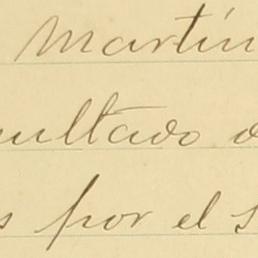 Martín
sultado d
s por el s